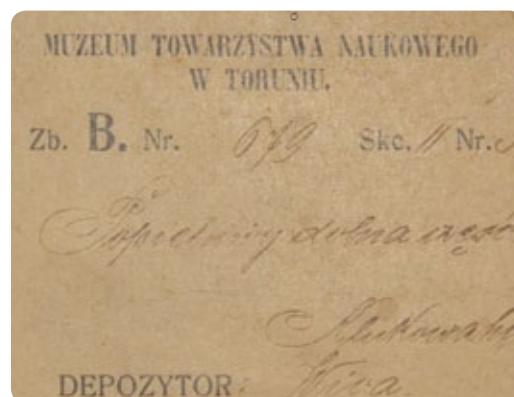 MUZEUM TOWARZYSTWA NAUKOWEGO
W TORUNIU.
Zb. B. Nr. 679 Skc. II Nr.
Popielnicy dolna część
DEPOZYTOR: